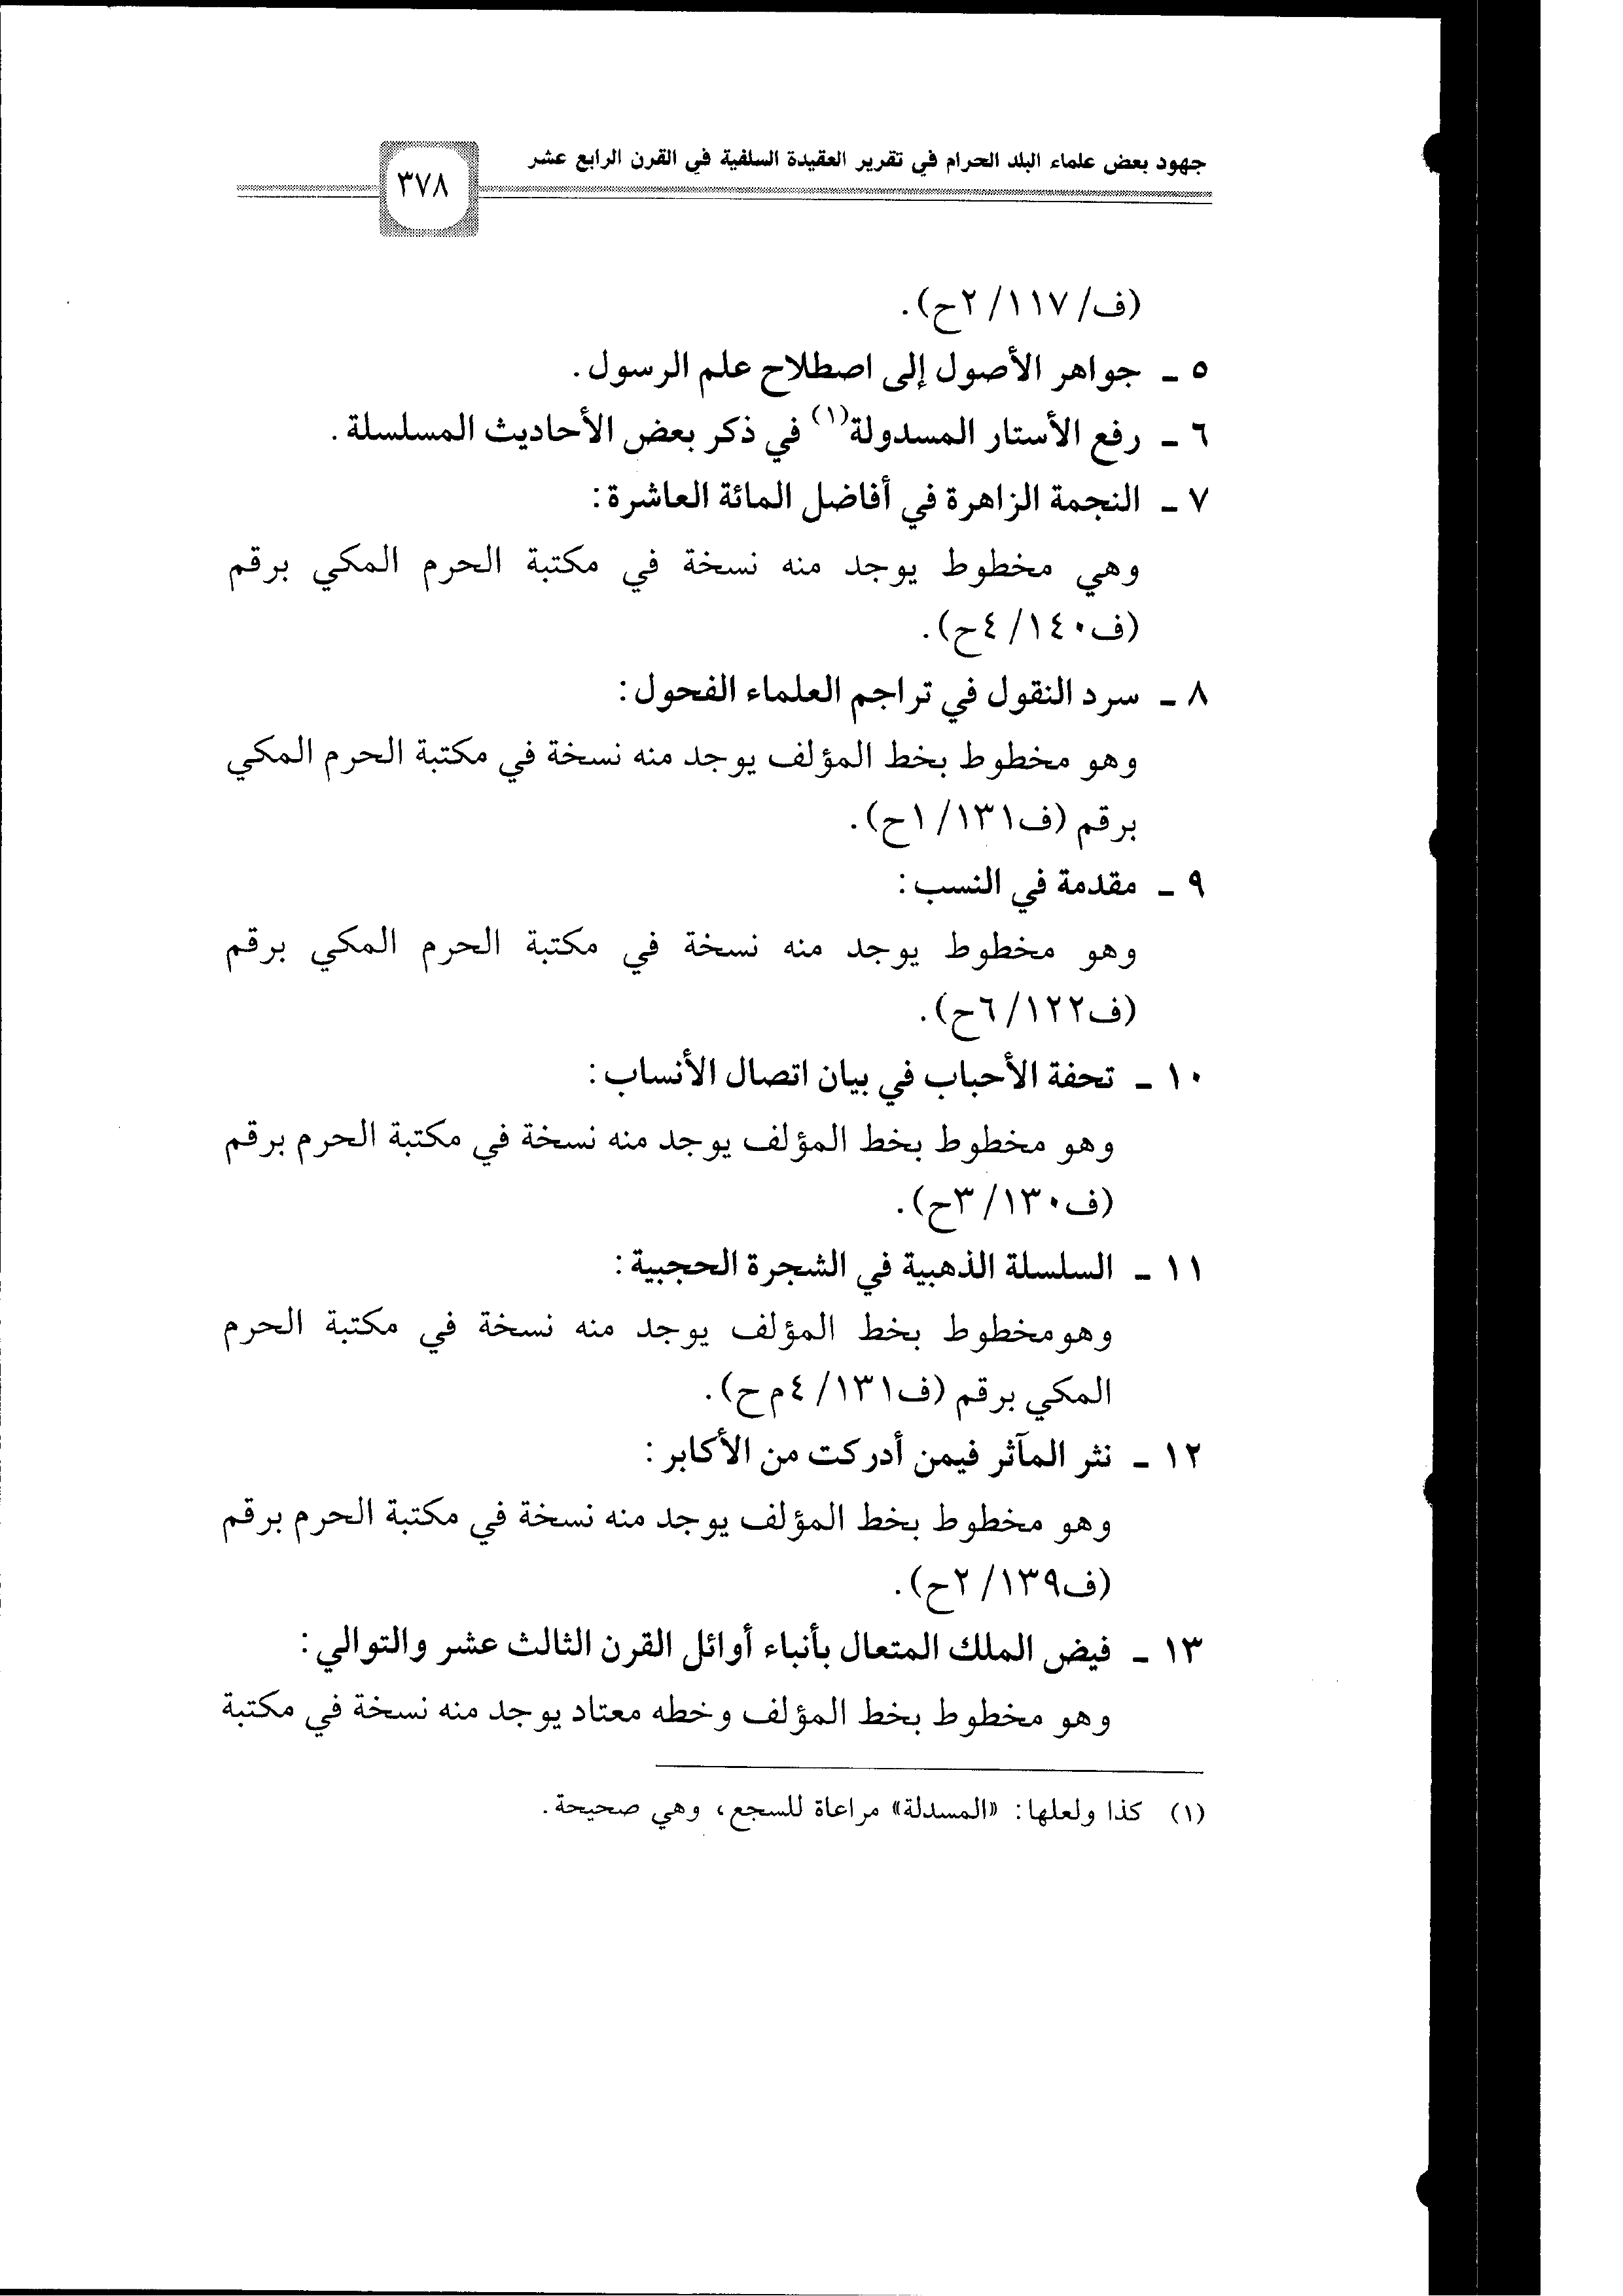 جهود بعض علماء البلد الحرام في تقرير العقيدة السلفية في القرن الرابع عشر
٣٧٨
(ف/ ١١٧/ ٢ح).
٥ ـ جواهر الأصول إلى اصطلاح علم الرسول.
٦ ـ رفع الأستار المسدولة(١) في ذكر بعض الأحاديث المسلسلة.
٧ ـ النجمة الزاهرة في أفاضل المائة العاشرة:
وهي مخطوط يوجد منه نسخة في مكتبة الحرم المكي برقم
(ف١٤٠/ ٤ح).
٨ ـ سرد النقول في تراجم العلماء الفحول:
وهو مخطوط بخط المؤلف يوجد منه نسخة في مكتبة الحرم المكي
برقم (ف١٣١/ ١ح).
٩ ـ مقدمة في النسب:
وهو مخطوط يوجد منه نسخة في مكتبة الحرم المكي برقم
(ف١٢٢/ ٦ح).
١٠ ـ تحفة الأحباب في بيان اتصال الأنساب:
وهو مخطوط بخط المؤلف يوجد منه نسخة في مكتبة الحرم برقم
(ف١٣٠/ ٣ح).
١١ ـ السلسلة الذهبية في الشجرة الحجبية:
وهومخطوط بخط المؤلف يوجد منه نسخة في مكتبة الحرم
المكي برقم (ف١٣١/ ٤م ح).
١٢ ـ نثر المآثر فيمن أدركت من الأكابر:
وهو مخطوط بخط المؤلف يوجد منه نسخة في مكتبة الحرم برقم
(ف١٣٩/ ٢ح).
١٣ ـ فيض الملك المتعال بأنباء أوائل القرن الثالث عشر والتوالي:
وهو مخطوط بخط المؤلف وخطه معتاد يوجد منه نسخة في مكتبة
(١) كذا ولعلها: «المسدلة» مراعاة للسجع، وهي صحيحة.